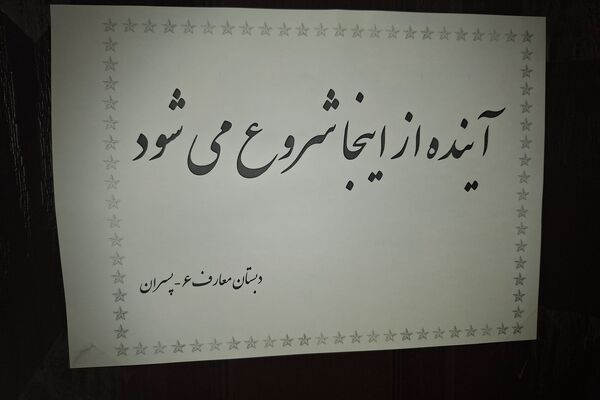 آینده از اینجا شروع می شود
دبستان معارف ۶ - پسران